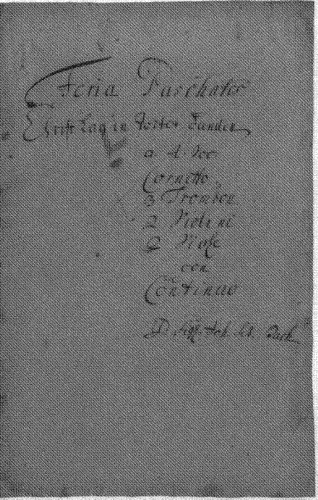 Feria Paschatos
Christ lag in Todes Banden
a 4. Voc
Cornetto
3 Trombon
2 Violini
2 Viole
con
Continuo
Di Sigr. Joh. Seb. Bach